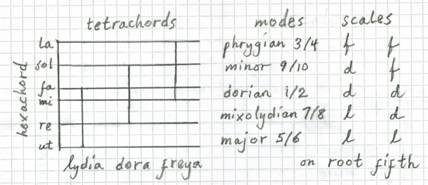 tetrachords modes scales
la phrygian 3/4 f f
sol minor 9/10 d f
fa dorian 1/2 d d
mi mixolydian 7/8 l d
re major 5/6 l l
ut
hexachord
lydia dora freya on root fifth